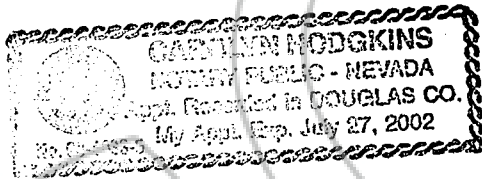 CAROLYN HODGKINS
NOTARY PUBLIC - NEVADA
Appt. Recorded in DOUGLAS CO.
My Appt. Exp. July 27, 2002